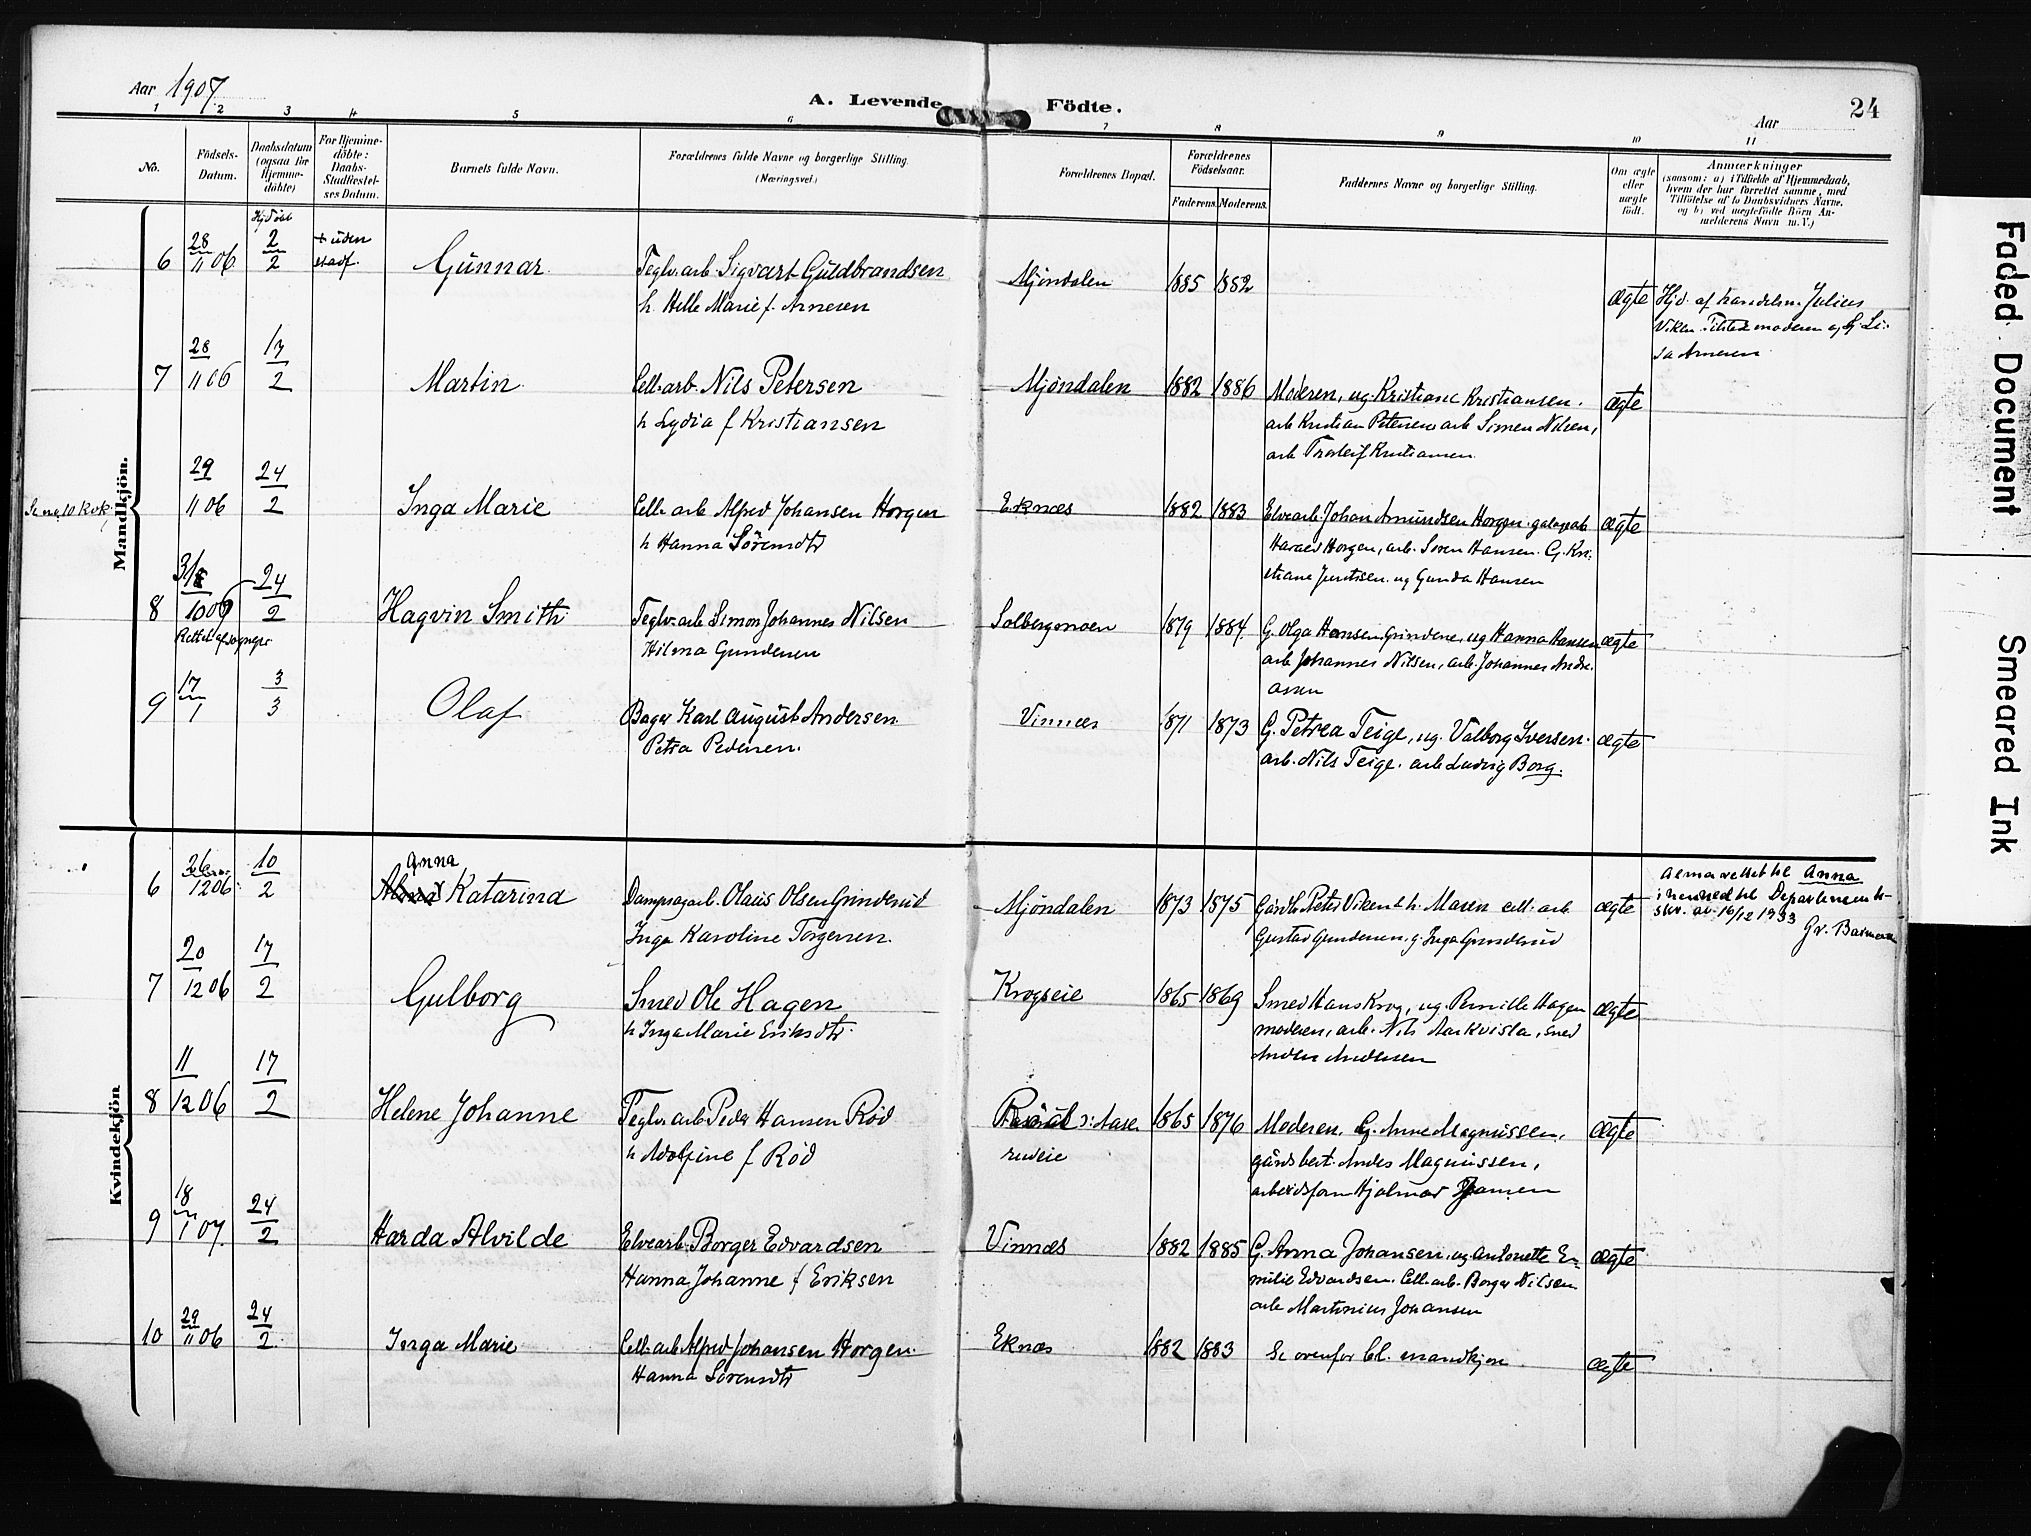 Aar 1907
A. Levende Födte.
24
Aar
1 2 3 4 5 6 7 8 9 10 11
No.
Födsels-Datum.
Daabsdatum (ogsaa for Hjemme-döbte)
For Hjemme-döbte: Daabs-Stadfæstel-ses Datum.
Barnets fulde Navn.
Forældrenes fulde Navne og borgerlige Stilling. (Næringsvei.)
Forældrenes Bopæl.
Forældrenes Födselsaar.
Faderens. Moderens.
Faddernes Navne og borgerlige Stilling.
Om ægte eller uægte födt.
Anmærkninger
(saasom: a) i Tilfælde af Hjemmedaab,
hvem der har forrettet samme, med
Tilföielse af to Daabsvidners Navne,
og b) ved uægtefödte Börn An-
melderens Navn m. V.)
Mandkjön.
6 28/11 06 Hj.döbt 2/2 + uden stadf. Gunnar Teglv.arb. Sigvart Guldbrandsen Mjøndalen 1885 1882 ægte Hjd. af handelsm. Julius
h. Helle Marie f. Arnesen
Viken. Tilsted moderen og G. Li-
sa Arnesen
7 28/11 06 17/2 Martin Cell.arb. Nils Petersen Mjøndalen 1882 1886 Moderen, ug. Kristiane Kristiansen. ægte
h Lydia f Kristiansen arb Kristian Petersen arb Simen Nilsen,
arb Thorleif Kristiansen
Se no 10 Kvk. 29/11 06 24/2 Inga Marie Cell. arb Alfred Johansen Horgen Eknæs 1882 1883 Elvearb. Johan Amundsen Horgen ægte
h Hanna Sörensdtr Harald Horgen, arb. Soren Hansen. G. Kri-
stiane Hansen ug Gunda Hansen
8 31/10 06 24/2 Hagvin Smith Teglv.arb Simon Johannes Nilsen Solbergmoen 1879 1884 G. Olga Hansen Grindene, ug Hanna Hansen ægte
Hilma Gundersen arb Johannes Nilsen, arb. Johannes Andre-
asen
9 17/1 3/3 Olaf Bager Karl August Andersen Vinnæs 1871 1873 G. Petrea Teige, ug. Valborg Iversen. ægte
Petra Pedersen. arb. Nils Teige. arb Ludvig Borg.
Kvindekjön
6 26/12 06 10/2 Anna Katarina Dampsagarb. Olaus Olsen Grinderud Mjöndalen 1873 1875 Gårdb. Peter Viken & h. Maren cell. arb ægte Alma rettet til Anna
Inga Karoline Torgersen. Gustav Gundersen. g. Inga Grinderud
i henhold til Departements-
skr. av 16/12 1933
7 20/12 06 17/2 Gulborg Smed Ole Hagen Krogseie 1865 1869 Smed Hans Krog, ug. Pernille Hagen ægte
h Inga Marie Eriksdtr. moderen, arb. Nils Aarkvisla, smed
Anders Andersen
8 11/12 06 17/2 Helene Johanne Teglv.arb Peder Hansen Rød 1865 1876 Moderen. G. Anne Magnussen, ægte
h Adolfine f Rød gårdsbest. Anders Magnussen,
arbeidsform Hjalmar Hansen
9 18/1 07. 24/2 Harda Alvilde Elvearb. Borger Edvardsen Vinnæs 1882 1885 G. Anna Johansen, ug. Antonette E- ægte
Hanna Johanne f Eriksen milie Edvardsen. Cell.arb. Borger Nilsen
arb Martinius Johansen
10 29/11 06 24/2 Inga Marie Cell.arb Alfred Johansen Horgen. Eknæs 1882 1883 Se ovenfor bl. mandkjøn ægte
Hanna Sørensdtr
Faded Document Smeared Ink